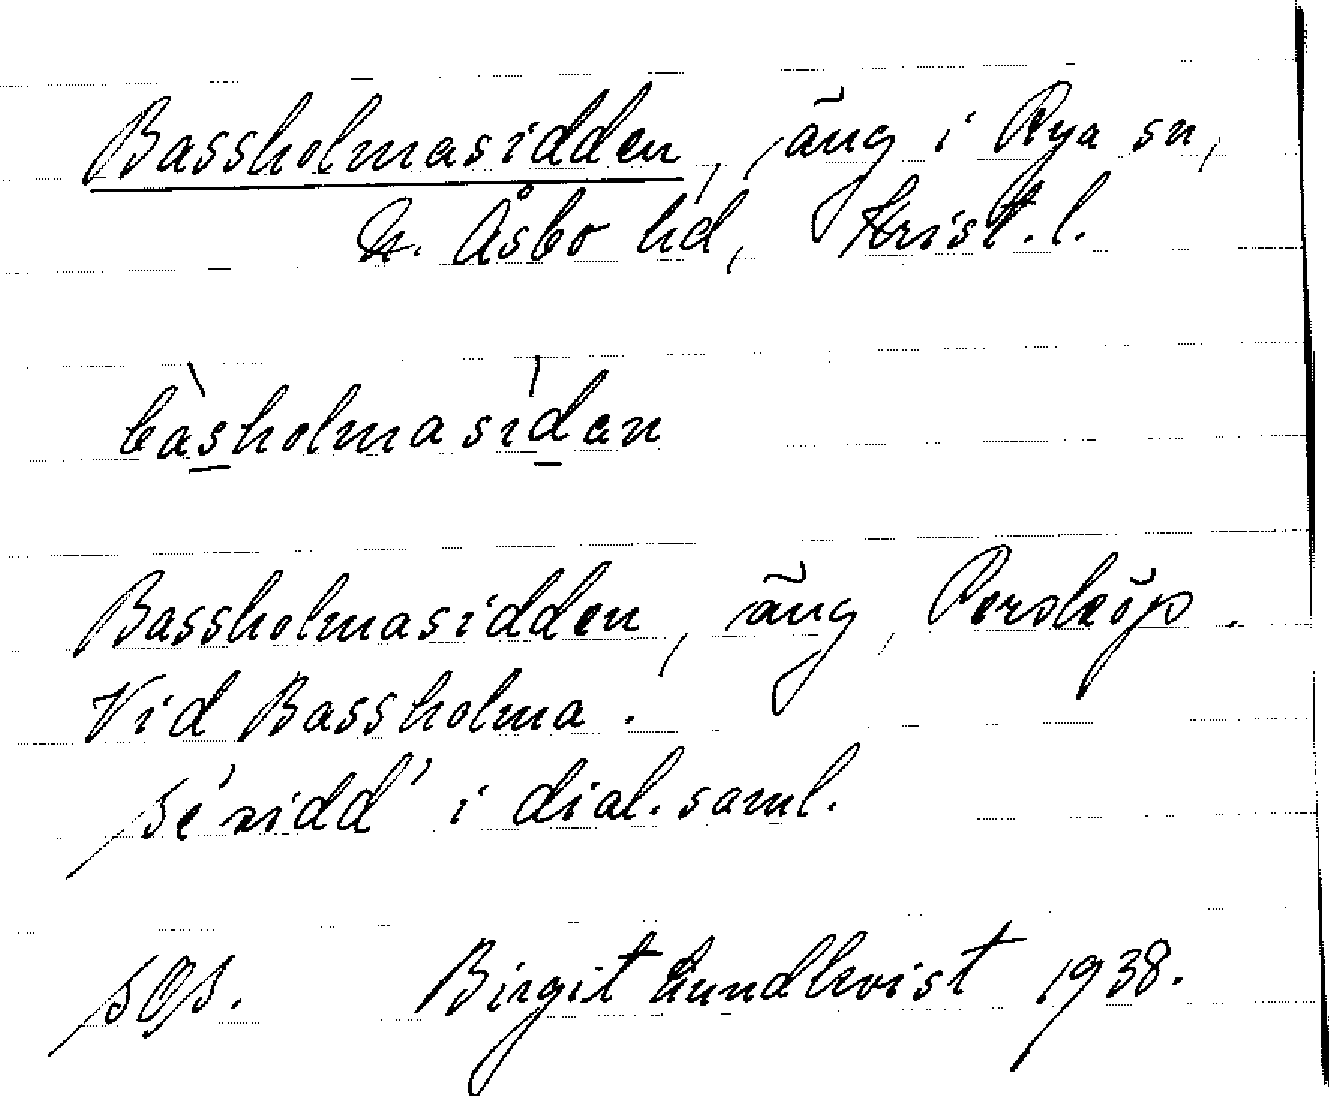 Bassholmasidden, äng i Rya sn,
N. Åsbo hd, Krist. l.
bàsholmasíden
Bassholmasidden, äng, Perstorp.
Vid Bassholma.
Se 'sidd' i dial. saml.
SOS. Birgit Lundkvist 1938.